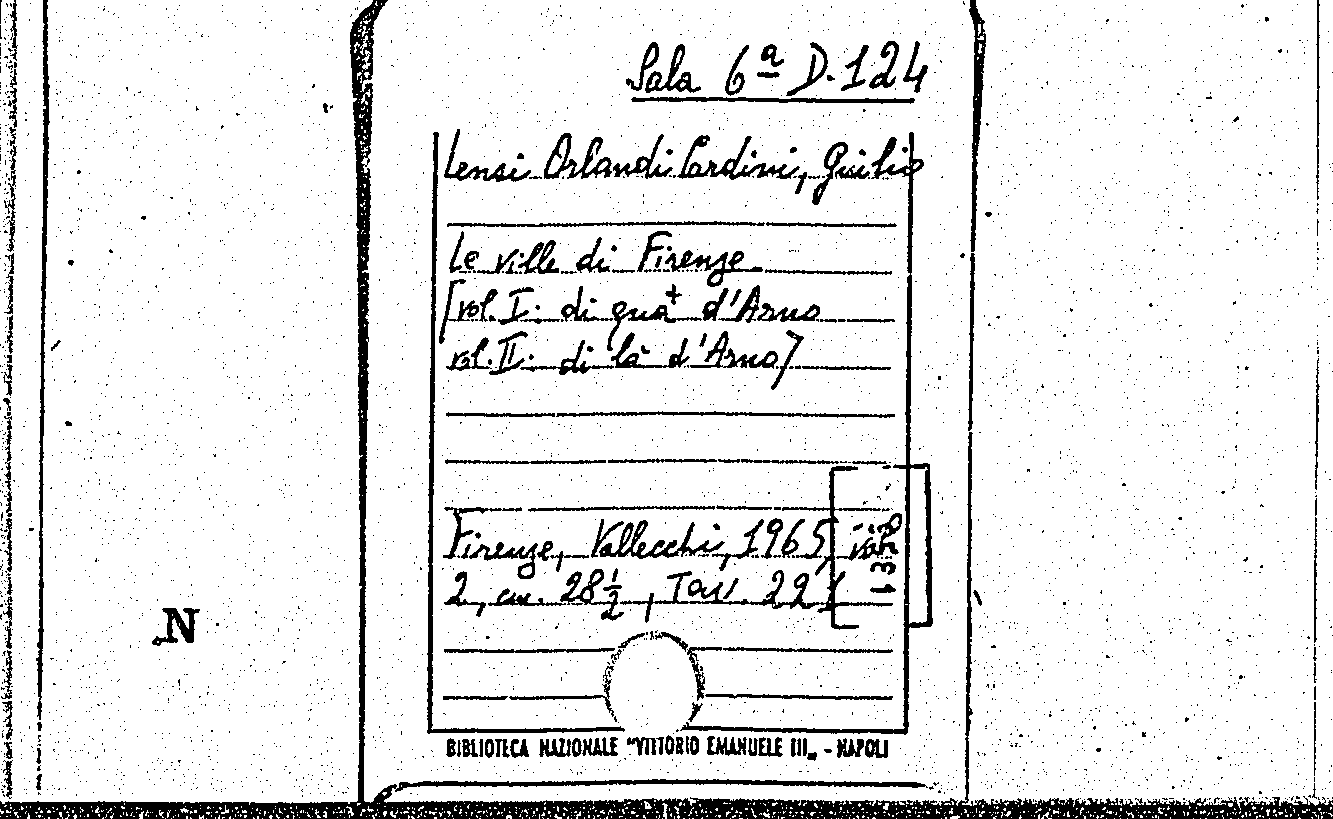 Sala 6ª D.124
Lensi Orlandi Cardini, Giulio
Le ville di Firenze
[vol. I: di qua d'Arno
vol. II: di là d'Arno]
Firenze, Vallecchi, 1965, voll.
2, cm. 28½, Tav. 221
N
BIBLIOTECA NAZIONALE "VITTORIO EMANUELE III„ - NAPOLI